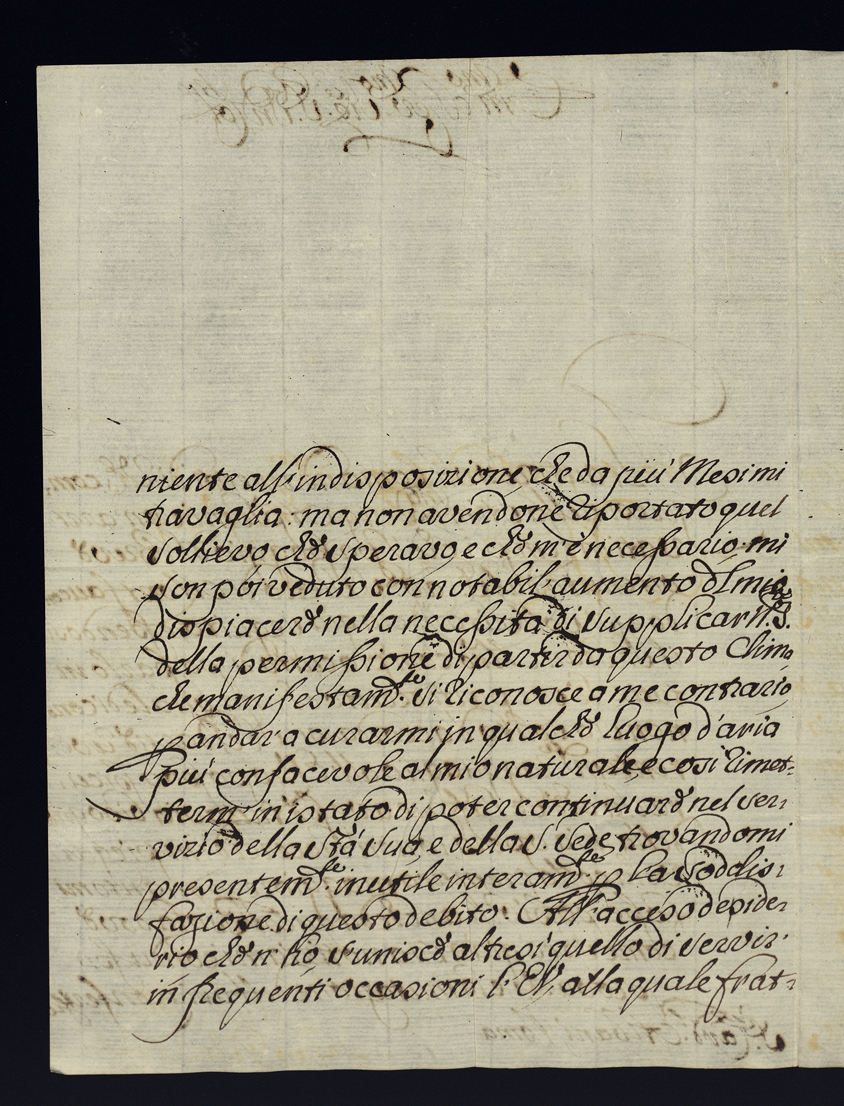 niente all'indisposizione, che da più Mesi mi
travaglia: ma non avendone riportato quel
sollievo che speravo e che m'è necessario, mi
son poi veduto con notabil'aumento del mio
dispiacere nella necessità di supplicar N. S.
della permissione di partir da questo Clima
che manifestam.te si riconosce a me contrario,
p andar a curarmi in qualche luogo d'aria
più confacevole al mio naturale, e così rimet=
termi in istato di poter continuare nel ser=
vizio della Stà Sua, e della S. Sede, trovandomi
presentem.te inutile interam.te p la soddis=
fazione di questo debito. All'acceso deside=
rio che n'hò, s'unisce altresì quello di servir
in frequenti occasioni l'E.V. alla quale frat=
S. Card.